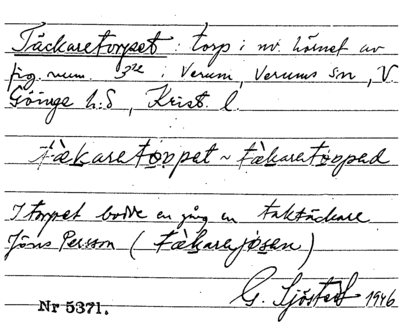 Täckaretorpet: torp i nv. hörnet av
fig. num. 3 i Verum, Verums sn, V.
Göinge h:d, Krist. l.
tàkaretorpet ~ tàkaretorped
I torpet bodde en gång en taktäckare
Jöns Persson (tàkarejösen)
G. Sjöstedt 1946
Nr 5371.